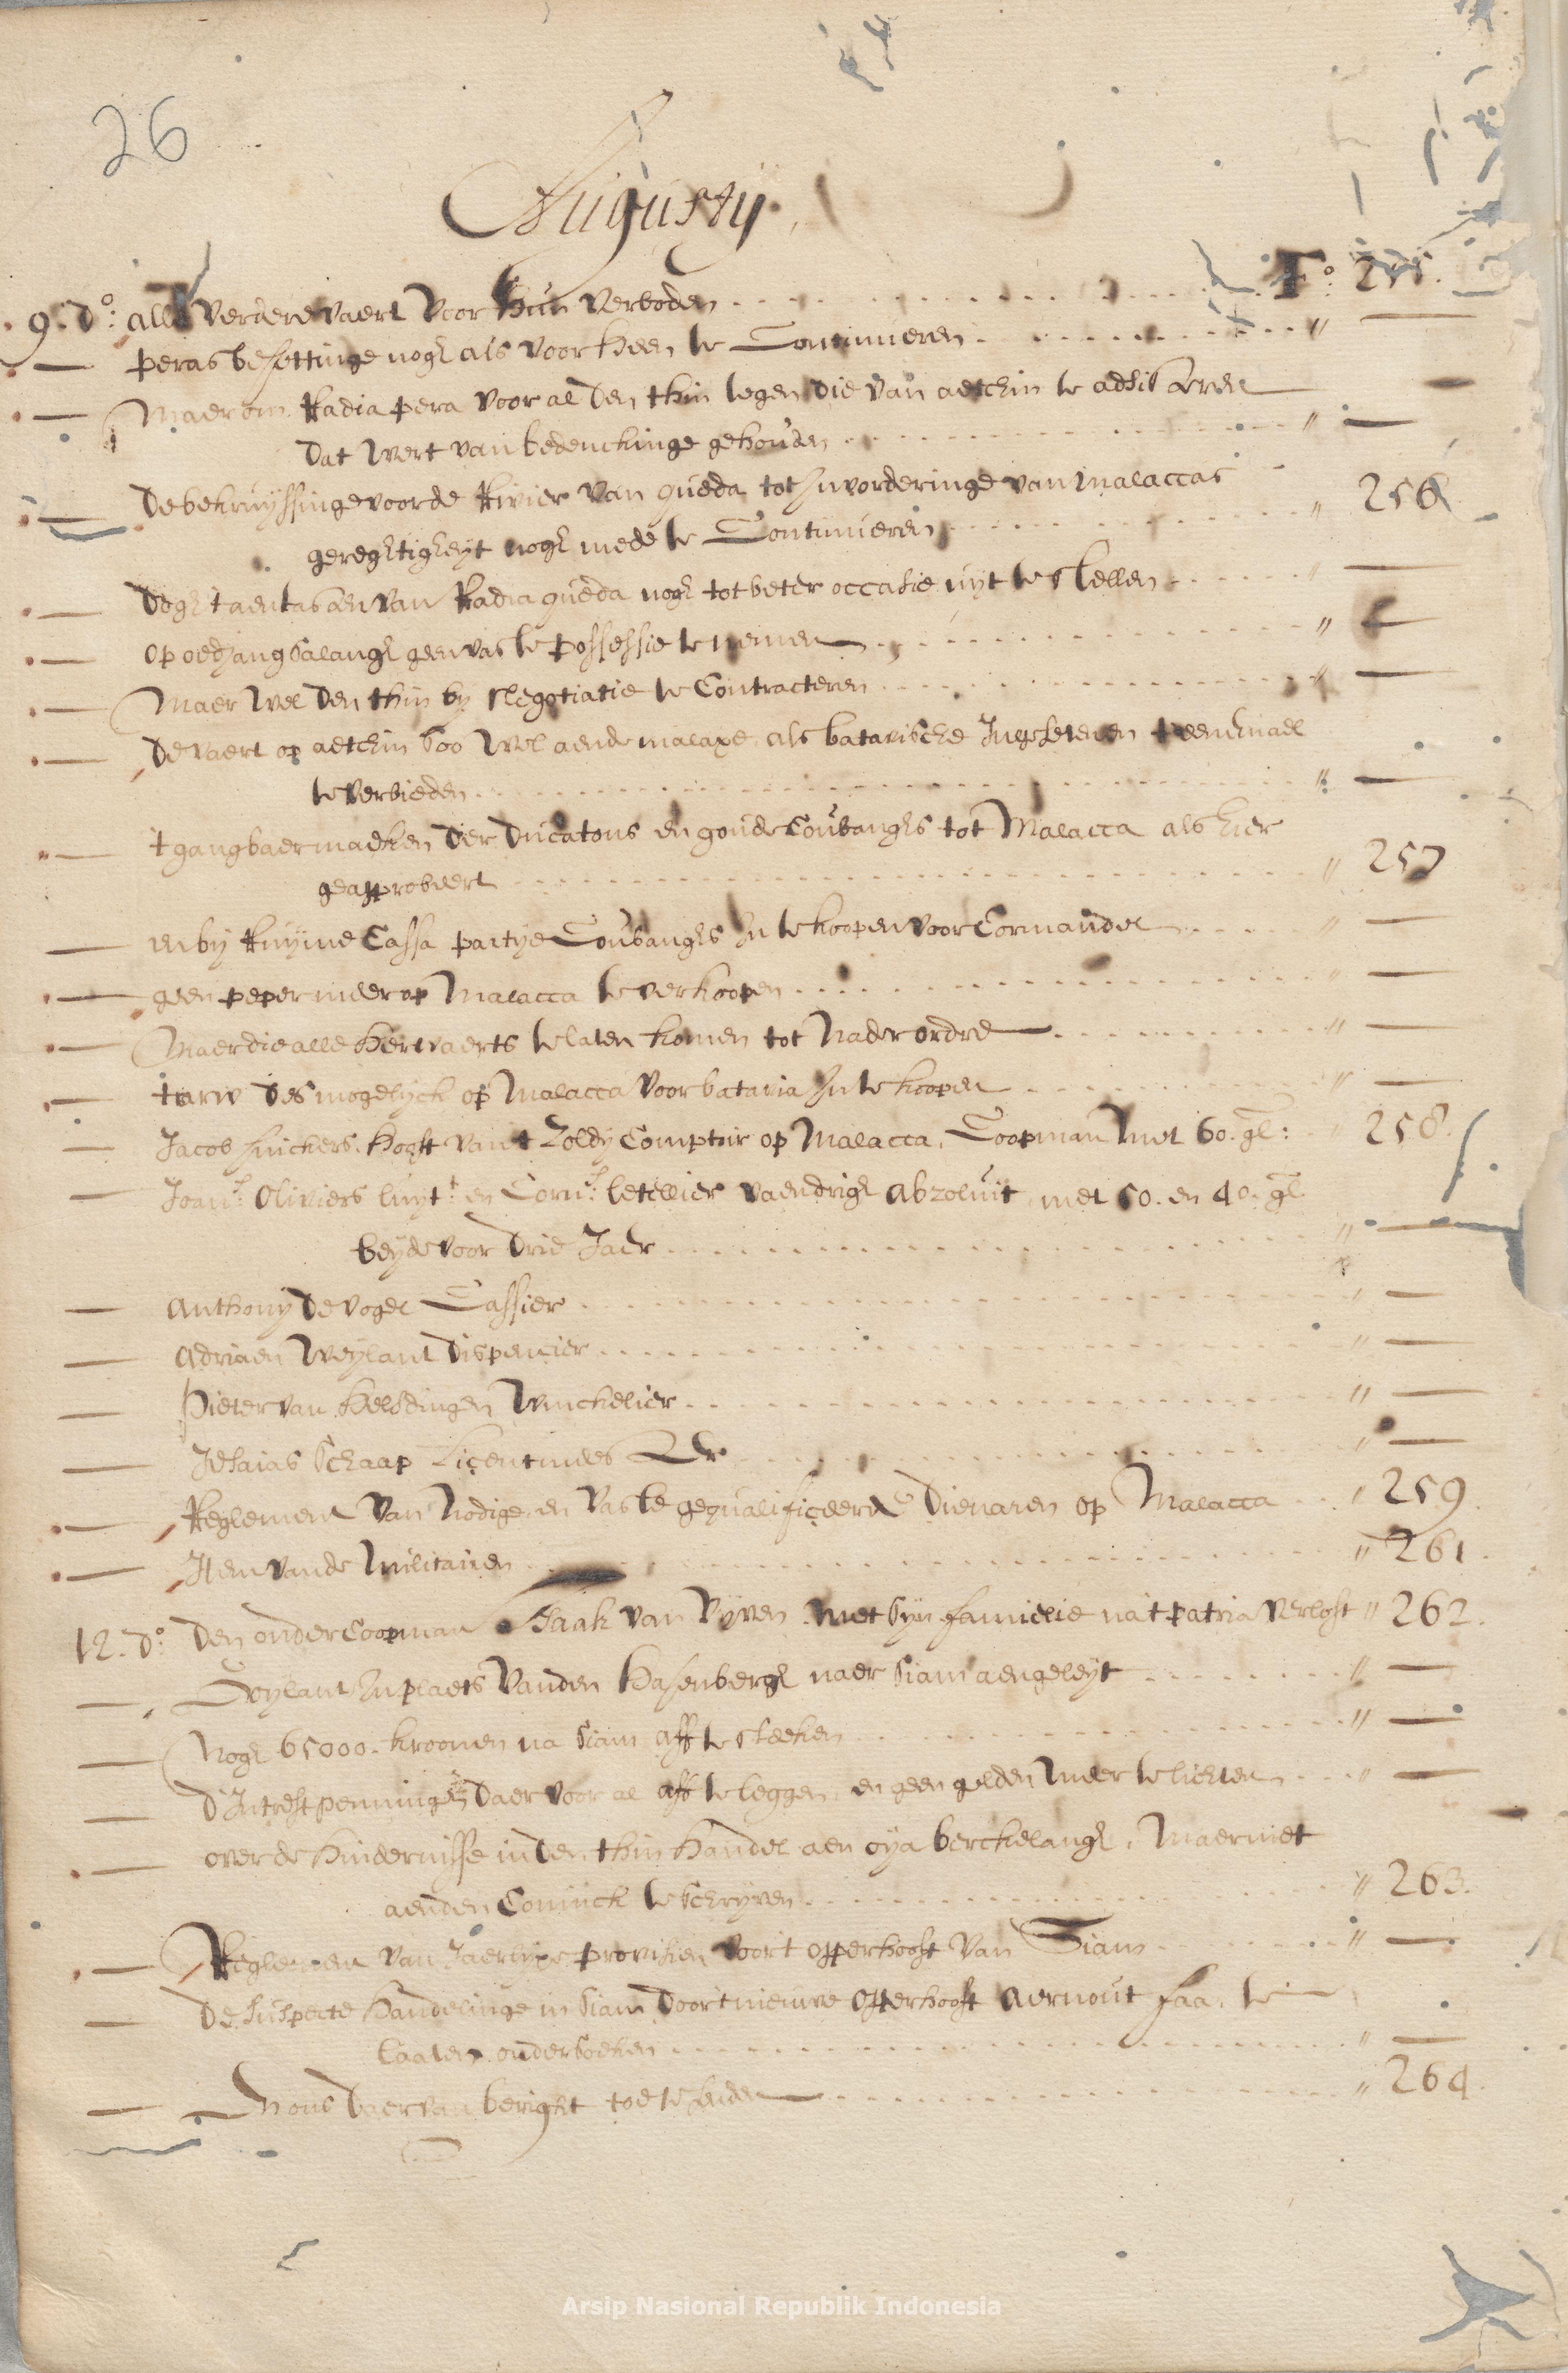 26
Augusty
9. do: alle verdere vaert voor hun verboden Fo: 255.
peras besettinge nogh als voorheen te Continueren "
Maer om Radia pera voor al den thin tegen die van aetchin te adsisteren
dat wert van bedenckinge gehouden "
De bekruyssinge voor de Rivier van queda tot Invorderinge van Malaccas
geregtigheyt nogh mede te Continueren " 256
Dogh t aentasten van Radia queda nogh tot beter occasie uyt te stellen "
op oedjang Salangh geen vaste possessie te nemen "
Maer wel den thin by Negotiatie te Contracteren "
De vaert op aetchin soo wel aende malaxe als batavische Ingesetenen t'eenemael
te verbieden "
t gangbaermaeken der Ducatons en goude Coubanghs tot Malacca als hier
geapprobeert " 257
en by Ruyme Cassa partye Coubanghs In te koopen voor Cormandel "
geen peper meer op Malacca te verkoopen "
Maer die alle herwaerts te laten komen tot Nader ordre "
tarw des mogelyck op Malacca voor batavia In te koopen "
Jacob Juichers hooft van't Zoldy Comptoir op Malacca, Coopman met 60. gl: " 258.
Joans: Oliviers luyt: en Corns: letellier vaendrigh abzoluit met 50. en 40. gl.
beyde voor drie Jaer "
Anthony de vogel Cassier "
Adriaen Weylant dispencier "
Pieter van Helsdingen Winckelier "
Jesaias Schaap Licentmeester "
Reglement van Nodige en vaste gequalificeerde Dienaren op Malacca " 259.
Item vande Militairen " 261.
12. do: den onder Coopman Isaak van Vyven met syn familie na't patria verlost " 262.
Goylant In plaets vanden Hasenbergh naer Siam aengeleyt "
Nogh 65000. kroonen na Siam aff te steeken "
D'Intrest penningen daer voor al aff te leggen en geen gelden meer te lichten "
over de Hindernisse inden thin handel aen oya berckelangh, Maer niet
aenden Coninck te schryven " 263.
Reglement van Jaerlyxe provisien voor't opperhooft van Siam "
De suspecte handelinge in Siam door't nieuwe opperhooft Aernout faa, te
laaten ondersoeken "
En ons daer van berigt toe te senden " 264.
Arsip Nasional Republik Indonesia